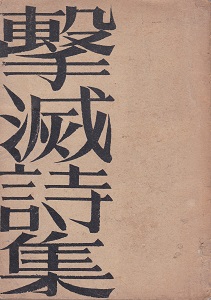 撃滅詩集